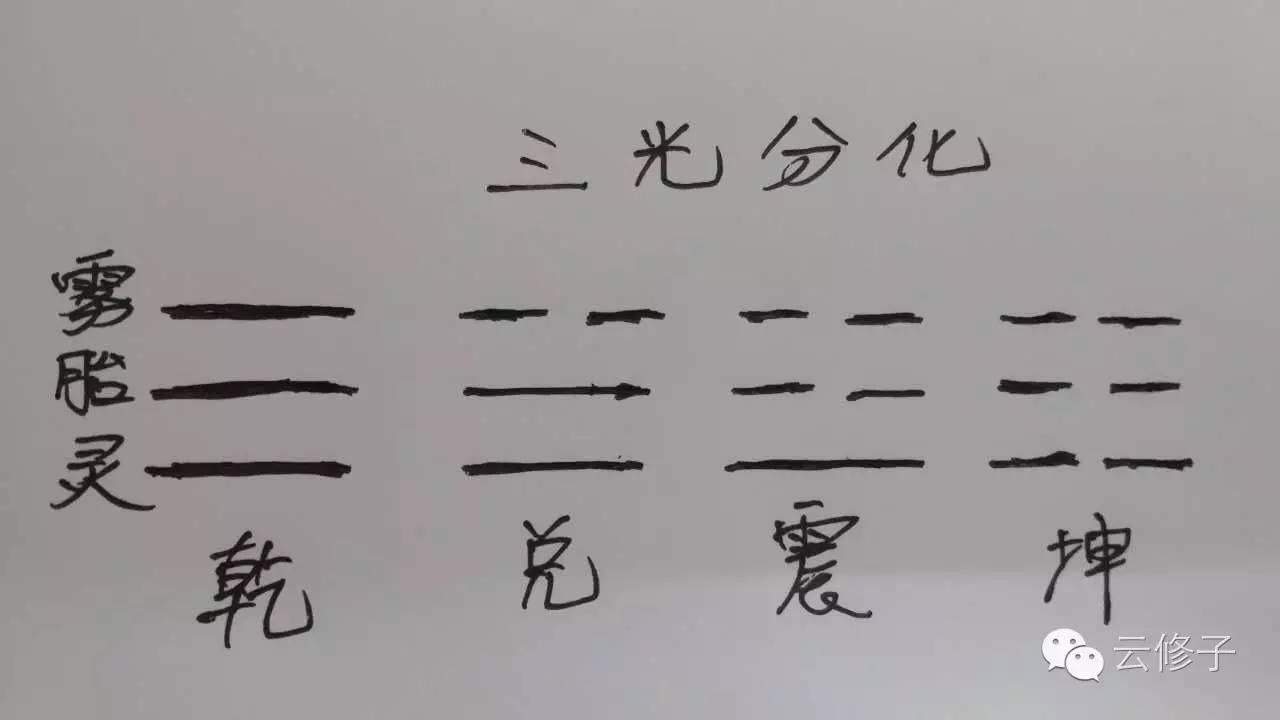 三光分化
雾
胎
灵
乾 兑 震 坤
云修子